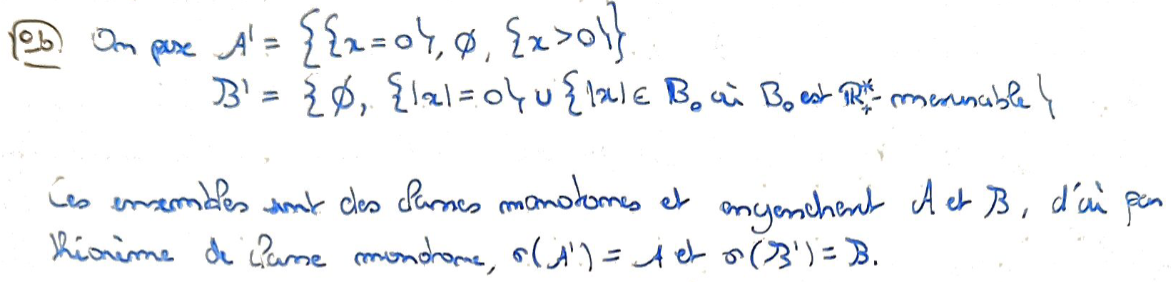 1°b. On pose A' = {{x=0}, ∅, {x>0}}.
B' = {∅, {|x|=0} ∪ {|x| ∈ B₀ où B₀ est ℝ₊*-mesurable}
Ces ensembles sont des classes monotones et engendrent A et B, d'où par
théorème de classe monotone, σ(A') = A et σ(B') = B.